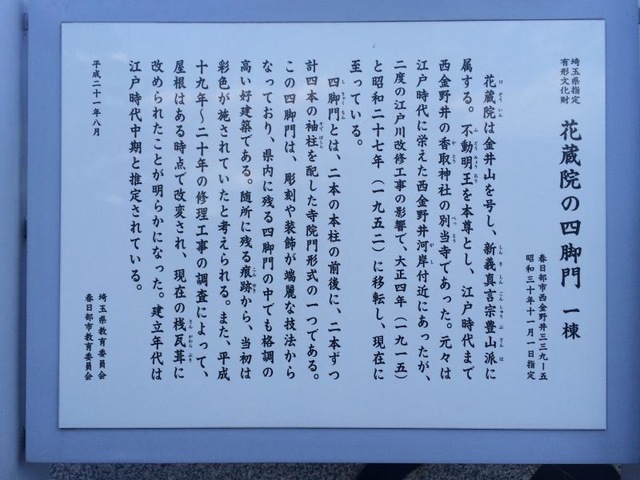 埼玉県指定
有形文化財
花蔵院の四脚門 一棟
春日部市西金野井三三九ー五
昭和三十年十一月一日指定
花蔵院は金井山を号し、新義真言宗豊山派に
属する。不動明王を本尊とし、江戸時代まで
西金野井の香取神社の別当寺であった。元々は
江戸時代に栄えた西金野井河岸付近にあったが、
二度の江戸川改修工事の影響で、大正四年（一九一五）
と昭和二十七年（一九五二）に移転し、現在に
至っている。
四脚門とは、二本の本柱の前後に、二本ずつ
計四本の袖柱を配した寺院門形式の一つである。
この四脚門は、彫刻や装飾が端麗な技法から
なっており、県内に残る四脚門の中でも格調の
高い好建築である。随所に残る痕跡から、当初は
彩色が施されていたと考えられる。また、平成
十九年～二十年の修理工事の調査によって、
屋根はある時点で改変され、現在の桟瓦葺に
改められたことが明らかになった。建立年代は
江戸時代中期と推定されている。
平成二十一年八月
埼玉県教育委員会
春日部市教育委員会